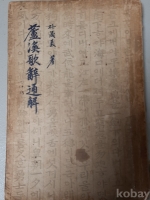 蘆溪歌辭通解
朴晟義 著
kobay